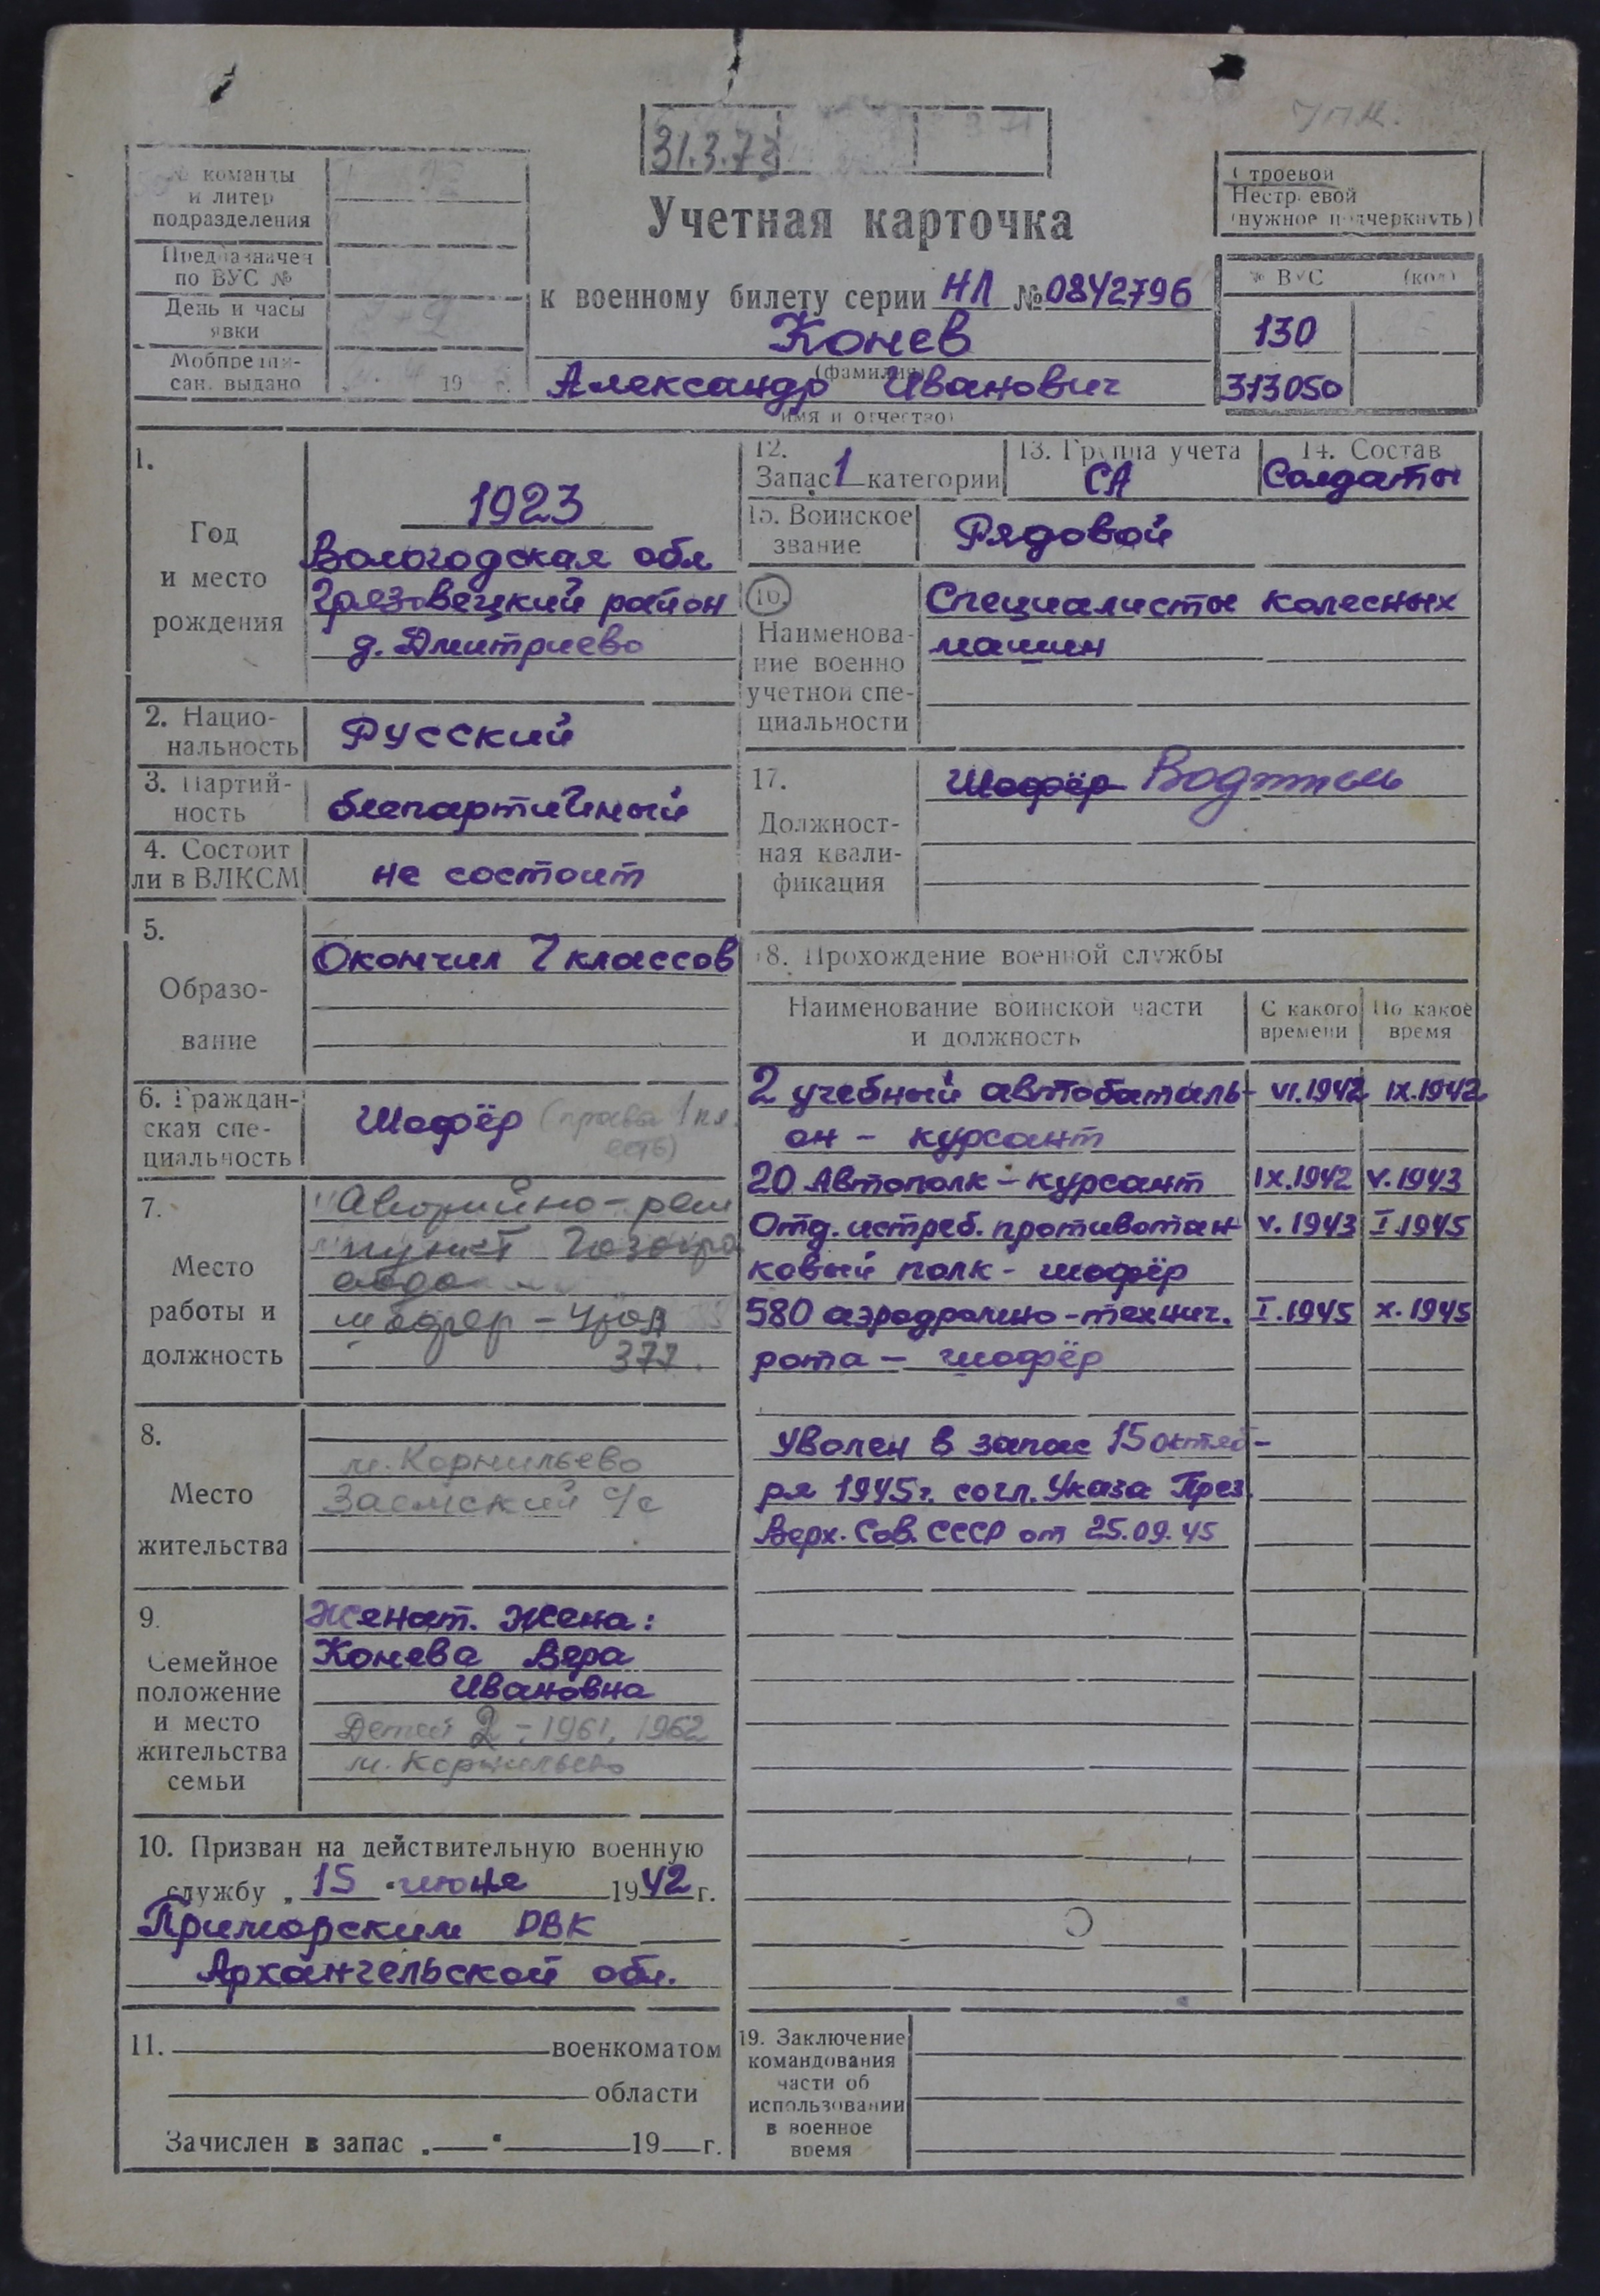 31.3.72
Учетная карточка
к военному билету серии НЛ № 0842796
Конев
(фамилия)
Александр Иванович
имя и отчество)
№ команды
и литер
подразделения
Предназначен
по ВУС №
День и часы
явки
Мобпредпи-
сан. выдано 19 г.
Строевой
Нестроевой
(нужное подчеркнуть)
№ ВУС (код)
130
313050
1.
Год
и место
рождения
1923
Вологодская обл
Грязовецкий район
д. Дмитриево
2. Нацио-
нальность
Русский
3. Партий-
ность
беспартийный
4. Состоит
ли в ВЛКСМ
не состоит
5.
Образо-
вание
Окончил 7 классов
6. Граждан-
ская спе-
циальность
Шофёр (права 1 кл.
есть)
7.
Место
работы и
должность
пункт
377.
8.
Место
жительства
м. Корнильево
Заемский с/с
9.
Семейное
положение
и место
жительства
семьи
Женат. Жена:
Конева Вера
Ивановна
Детей 2 - 1961, 1962
м. Корнильево
10. Призван на действительную военную
службу „ 15 " июня 1942 г.
Приморским РВК
Архангельской обл.
11. военкоматом
области
Зачислен в запас „ " 19 г.
12.
Запас 1 категории
13. Группа учета
СА
14. Состав
Солдаты
15. Воинское
звание
Рядовой
16.
Наименова-
ние военно
учетной спе-
циальности
Специалисты колесных
машин
17.
Должност-
ная квали-
фикация
Шофёр Водитель
18. Прохождение военной службы
Наименование воинской части
и должность
С какого
времени
По какое
время
2 учебный автобаталь- VI.1942 IX.1942
он - курсант
20 Автополк - курсант IX.1942 V.1943
Отд. истреб. противотан V.1943 I.1945
ковый полк - шофёр
580 аэродромно-технич. I.1945 X.1945
рота - шофёр
Уволен в запас 15 октяб-
ря 1945г. согл. Указа През.
Верх. Сов. СССР от 25.09.45
19. Заключение
командования
части об
использовании
в военное
время